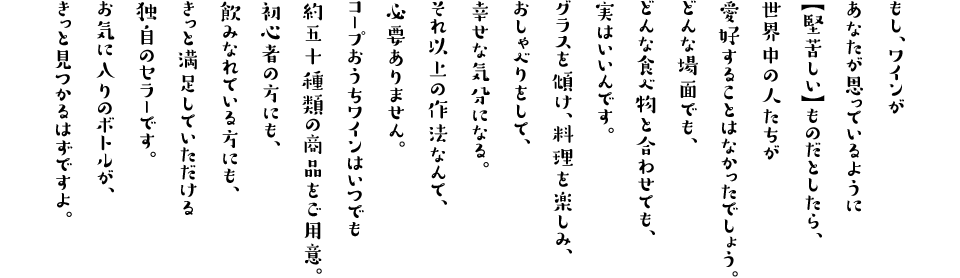 もし、ワインが
あなたが思っているように
【堅苦しい】ものだとしたら、
世界中の人たちが
愛好することはなかったでしょう。
どんな場面でも、
どんな食べ物と合わせても、
実はいいんです。
グラスを傾け、料理を楽しみ、
おしゃべりをして、
幸せな気分になる。
それ以上の作法なんて、
必要ありません。
コープおうちワインはいつでも
約五十種類の商品をご用意。
初心者の方にも、
飲みなれている方にも、
きっと満足していただける
独自のセラーです。
お気に入りのボトルが、
きっと見つかるはずですよ。